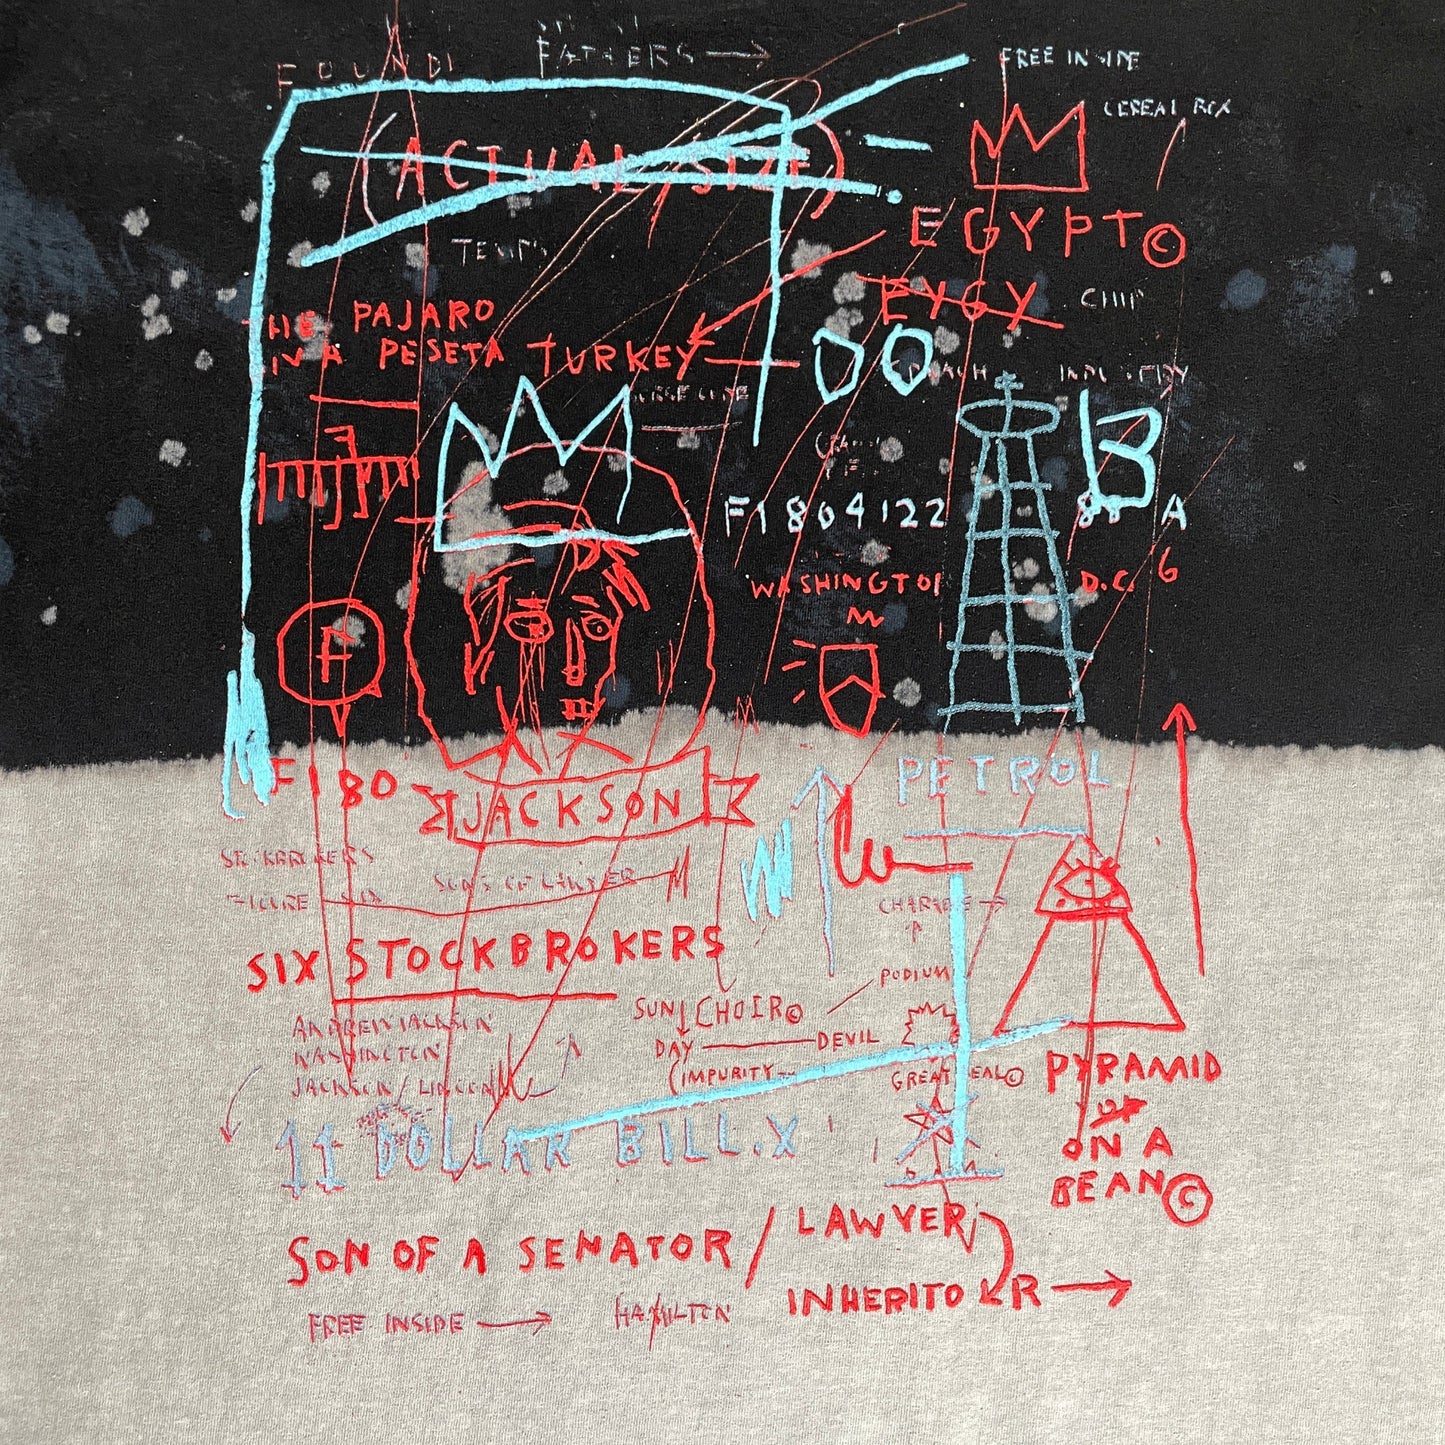 FOUND
FATHERS
FREE INSIDE
CEREAL BOX
(ACTUAL SIZE)
EGYPT©
EYGY
CHIP
PAJARO
IN A PESETA
TURKEY
B
F1804122
88 A
WASHINGTON
D.C. 6
F
PETROL
F180
JACKSON
STOCKBROKERS
FIGURE SIX
CHARADE
SIX STOCKBROKERS
PODIUM
SUN CHOIR©
DAY
DEVIL
(IMPURITY
GREAT SEAL©
ANDREW JACKSON
WASHINGTON
JACKSON / LINCOLN
PYRAMID
OF
ON A
BEAN©
DOLLAR BILL.X
SON OF A SENATOR / LAWYER
INHERITOR
FREE INSIDE
HAMILTON